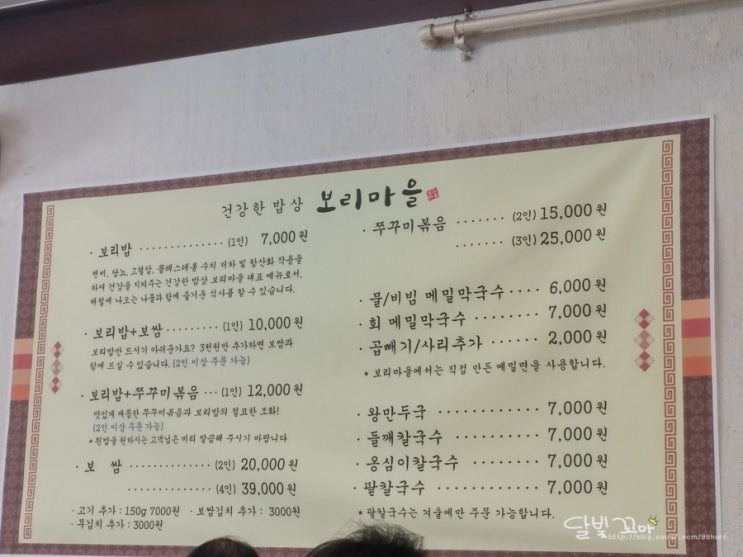 건강한 밥상 보리마을
· 보리밥 ·············· (1인) 7,000원
변비, 당뇨, 고혈압, 콜레스테롤 수치 저하 및 항산화 작용을
하여 건강을 지켜주는 건강한 밥상 보리마을 대표 메뉴로서,
제철에 나오는 나물과 함께 즐거운 식사를 할 수 있습니다.
· 보리밥+보쌈 ········· (1인) 10,000원
보리밥만 드시기 아쉬운가요? 3천원만 추가하면 보쌈과
함께 드실 수 있습니다. (2인 이상 주문 가능)
· 보리밥+쭈꾸미볶음 ··· (1인) 12,000원
맛있게 매콤한 쭈꾸미볶음과 보리밥의 절묘한 조화!
(2인 이상 주문 가능)
* 흰밥을 원하시는 고객님은 미리 말씀해 주시기 바랍니다
· 보 쌈 ·············· (2인) 20,000원
·············· (4인) 39,000원
· 고기 추가 : 150g 7000원 · 보쌈김치 추가 : 3000원
· 무김치 추가 : 3000원
· 쭈꾸미볶음 ······· (2인) 15,000원
······· (3인) 25,000원
· 물/비빔 메밀막국수 ···· 6,000원
· 회 메밀막국수 ········ 7,000원
· 곱빼기/사리추가 ······ 2,000원
* 보리마을에서는 직접 만든 메밀면을 사용합니다.
· 왕만두국 ············ 7,000원
· 들깨칼국수 ·········· 7,000원
· 옹심이칼국수 ········ 7,000원
· 팥칼국수 ············ 7,000원
* 팥칼국수는 겨울에만 주문 가능합니다.
달빛꼬마
http://blog.naver.com/99horn